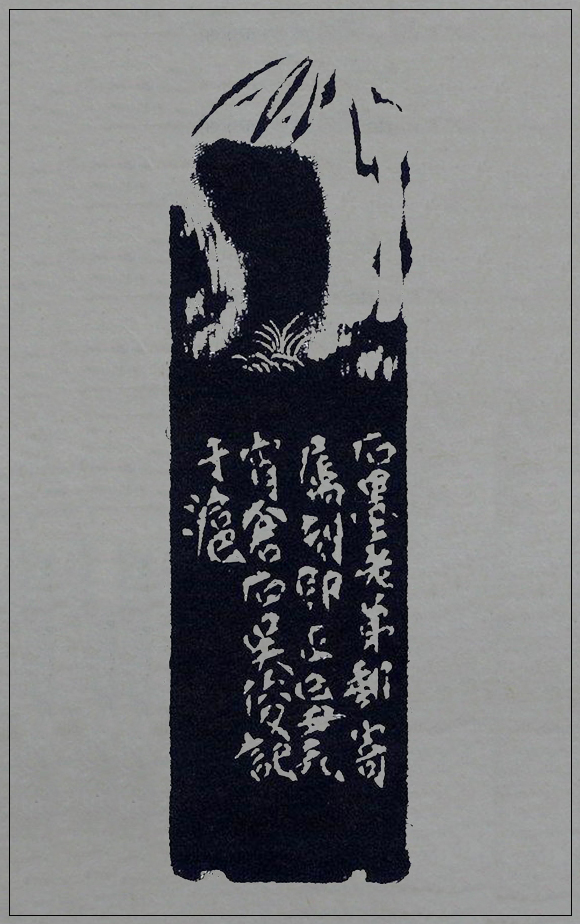 石墨老弟郵寄
屬刻即正己丑元
宵倉石吳俊記
于滬